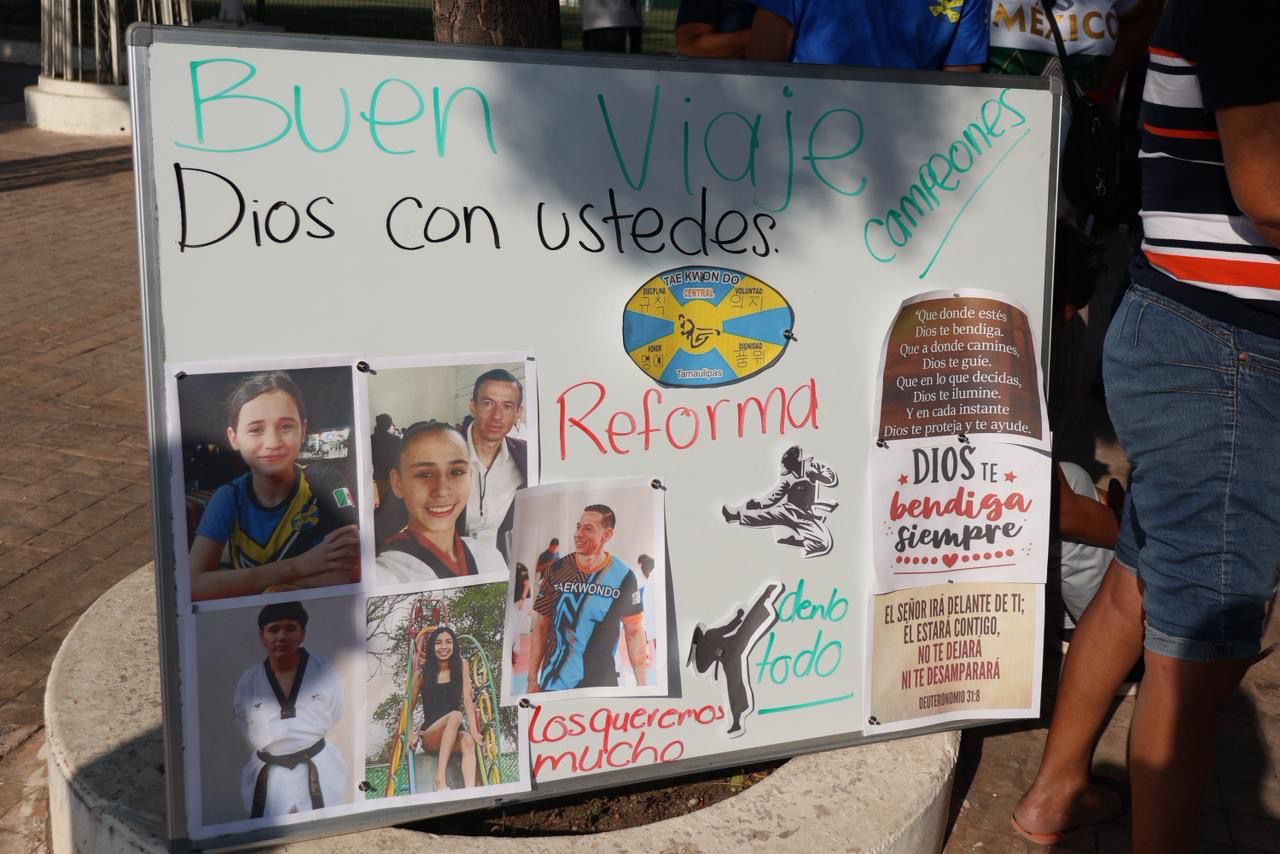 MEXICO
Buen Viaje
campeones
Dios con ustedes.
TAE KWON DO
CENTRAL
DISCIPLINA
VOLUNTAD
규칙
의지
HONOR
DIGNIDAD
명예
품위
Tamaulipas
Reforma
TAEKWONDO
denlo
todo
Los queremos
mucho
"Que donde estés
Dios te bendiga.
Que a donde camines,
Dios te guíe.
Que en lo que decidas,
Dios te ilumine.
Y en cada instante
Dios te proteja y te ayude.
DIOS TE
bendiga
siempre
EL SEÑOR IRÁ DELANTE DE TI;
ÉL ESTARÁ CONTIGO,
NO TE DEJARÁ
NI TE DESAMPARARÁ
DEUTERONOMIO 31:8